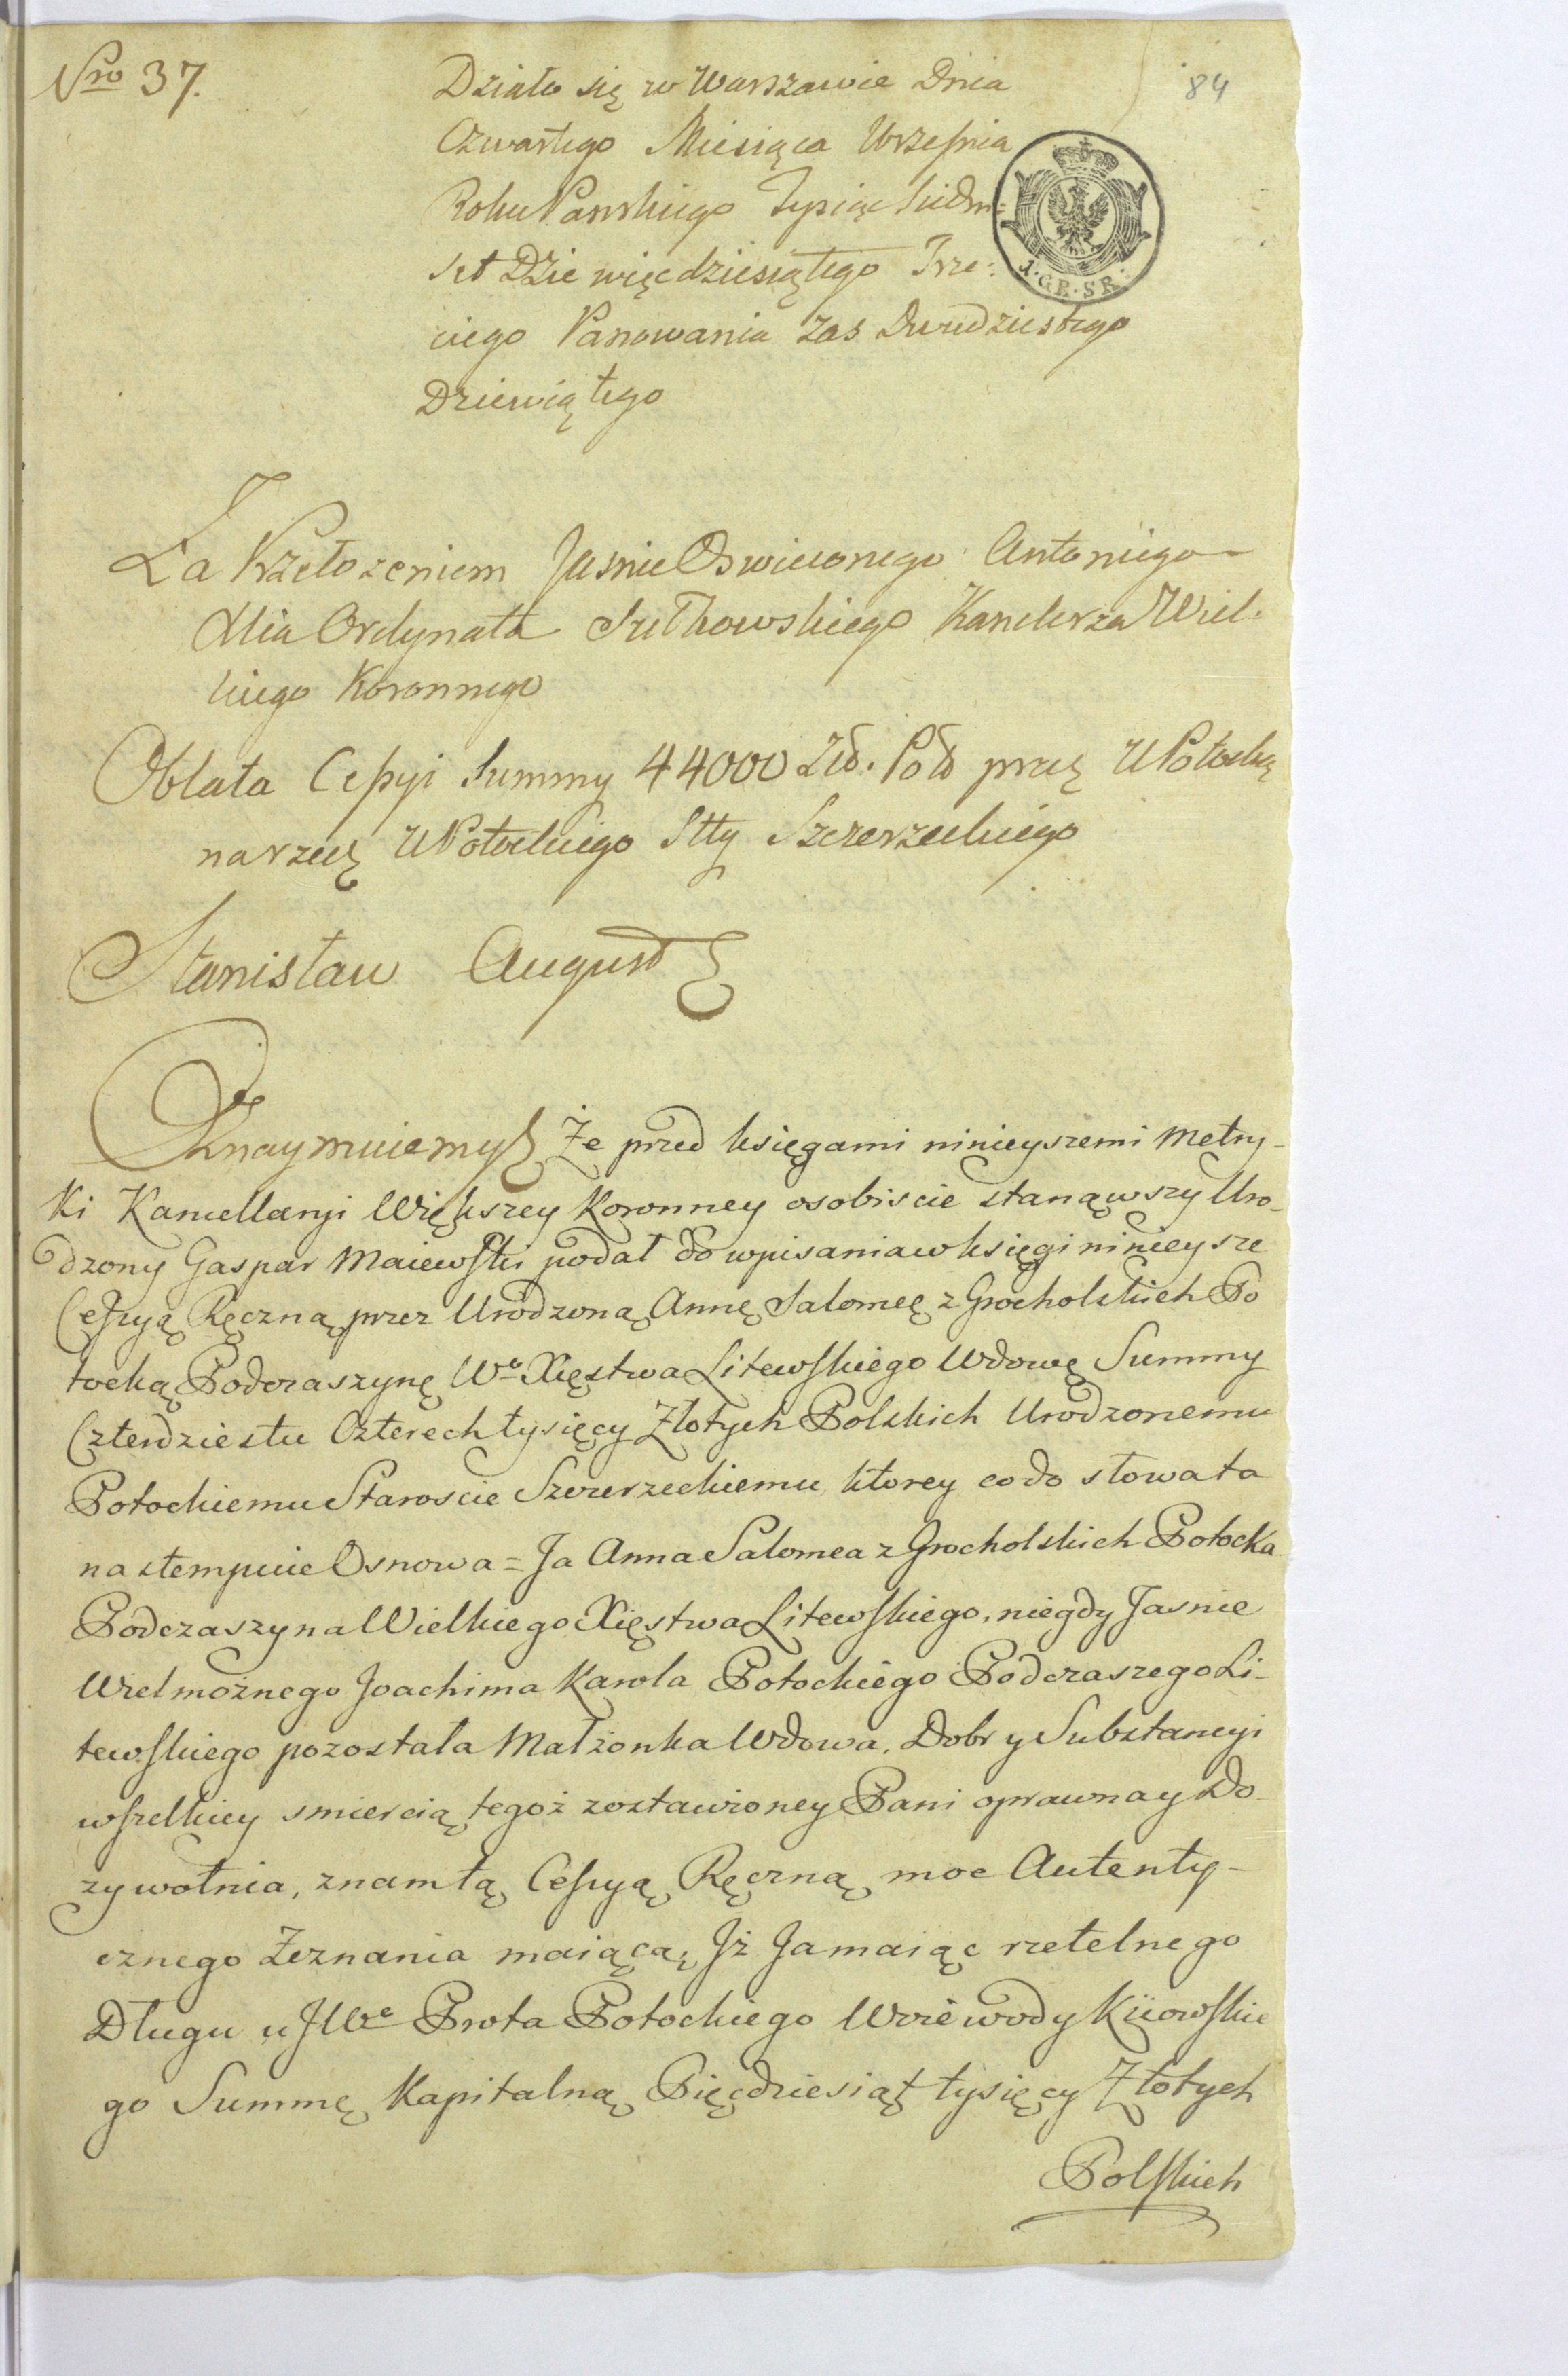 Nro 37.
84
Działo się w Warszawie Dnia
Czwartego Miesiąca Września
Roku Pańskiego Tysiąc Siedm=
set Dziewięcdziesiątego Trze:
ciego Panowania zas Dwudziestego
Dziewiątego
1·GR·SR·
Za Przełozeniem Jasnie Oswieconego Antoniego
Xcia Ordynata Sułkowskiego Kanclerza Wiel-
kiego Koronnego
Oblata Cessyi Summy 44000 Zło. Pol przez U Potocką
na rzecz U Potockiego Stty Szczerzeckiego
Stanisław August
Oznaymuiemy Że przed księgami ninieyszemi Metry-
ki Kancellaryi Większey Koronney osobiscie stanąwszy Uro-
dzony Gaspar Maiewski podał do wpisania w księgi ninieysze
Cessyą Ręczną przez Urodzoną Annę Salomeę z Grocholskich Po
tocką Podczaszynę Wo Xięstwa Litewskiego Wdowę Summy
Czterdziestu Czterech tysięcy Złotych Polskich Urodzonemu
Potockiemu Staroscie Szczerzeckiemu, ktorey co do słowa ta
nastempuie Osnowa = Ja Anna Salomea z Grocholskich Potocka
Podczaszyna Wielkiego Xięstwa Litewskiego, niegdy Jasnie
Wielmożnego Joachima Karola Potockiego Podczaszego Li-
tewskiego pozostała Małżonka Wdowa, Dobr y Substancyi
wszelkiey smiercią tegoż zostawioney Pani oprawna y Do-
zywotnia, znam tą Cessyą Ręczną moc Autenty-
cznego Zeznania maiącą, Jż Ja maiąc rzetelnego
Długu u JWo Prota Potockiego Woiewody Kiiowskie
go Summę Kapitalną Pięcdziesiąt tysięcy Złotych
Polskich